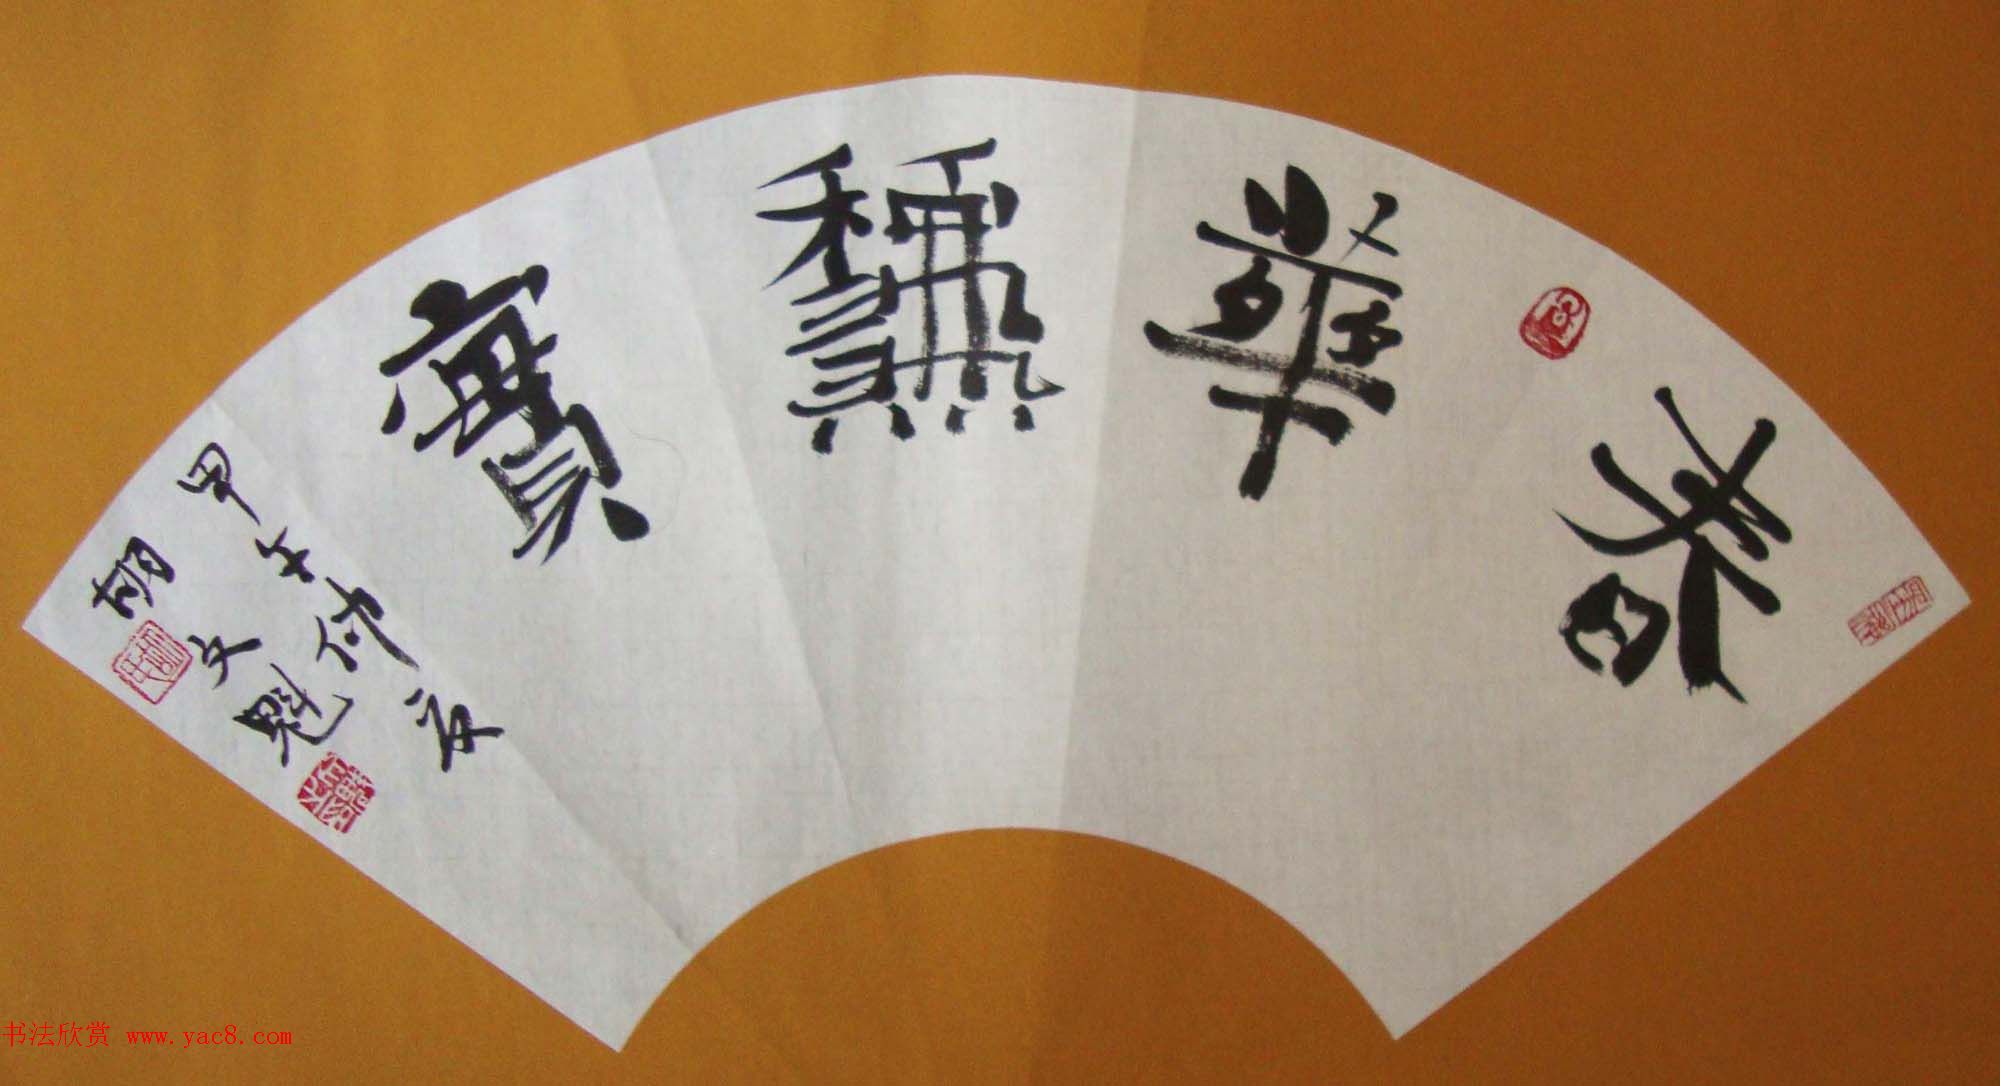 春華穐實
甲午仲夏
胡文魁
书法欣赏 www.yac8.com